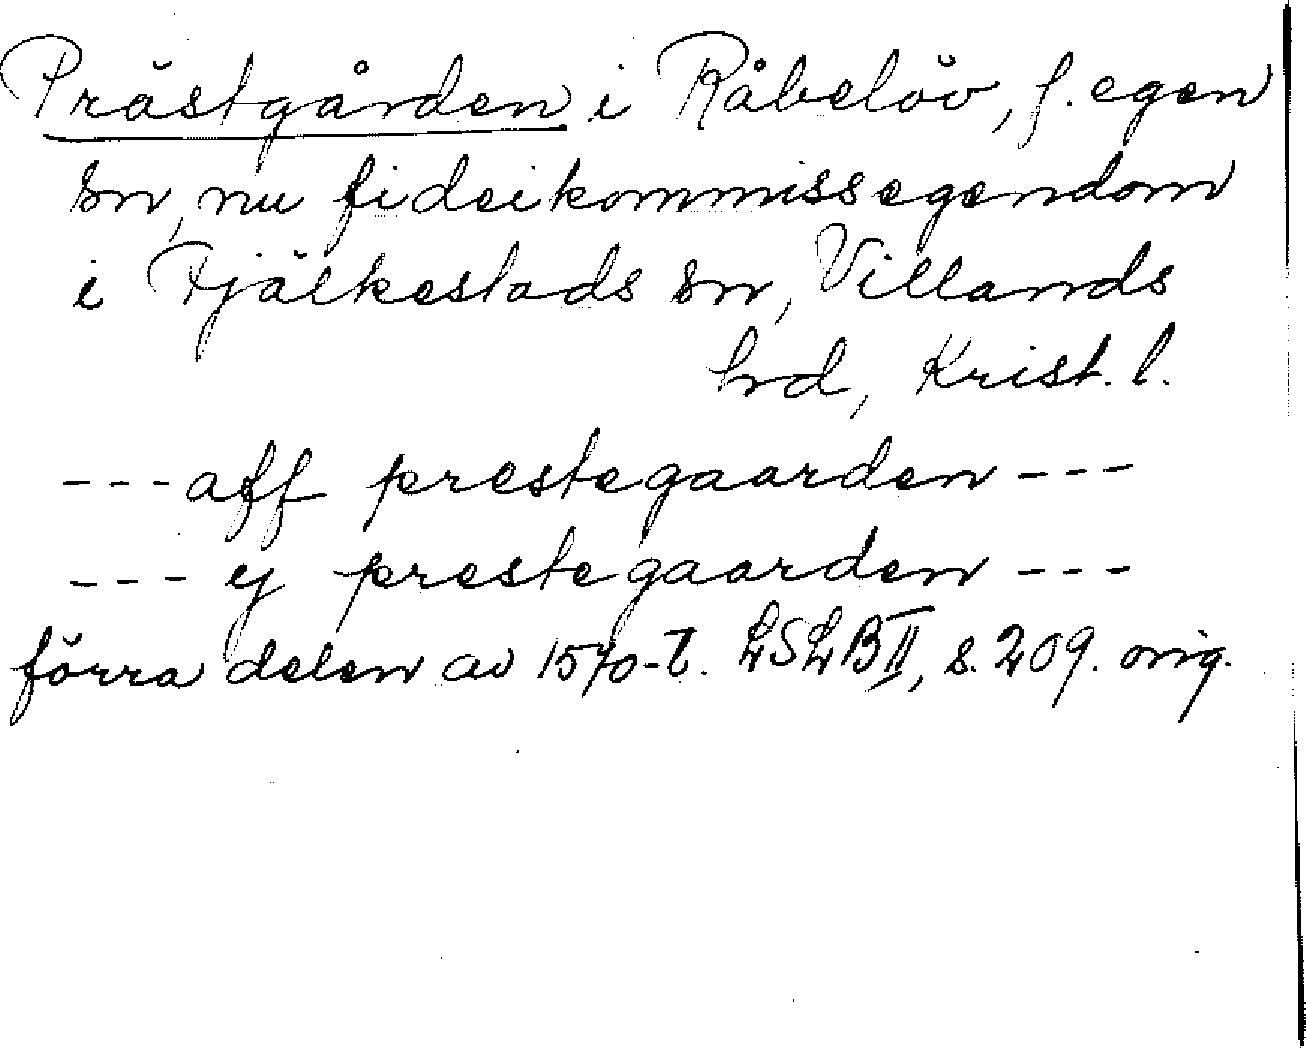 Prästgården i Råbelöv, f. egen
sn, nu fideikommissegendom
i Fjälkestads sn, Villands
hrd, Krist. l.
---aff prestegaarden---
--- ej prestegaarden---
förra delen av 1570-t. LSLB II, s. 209. orig.